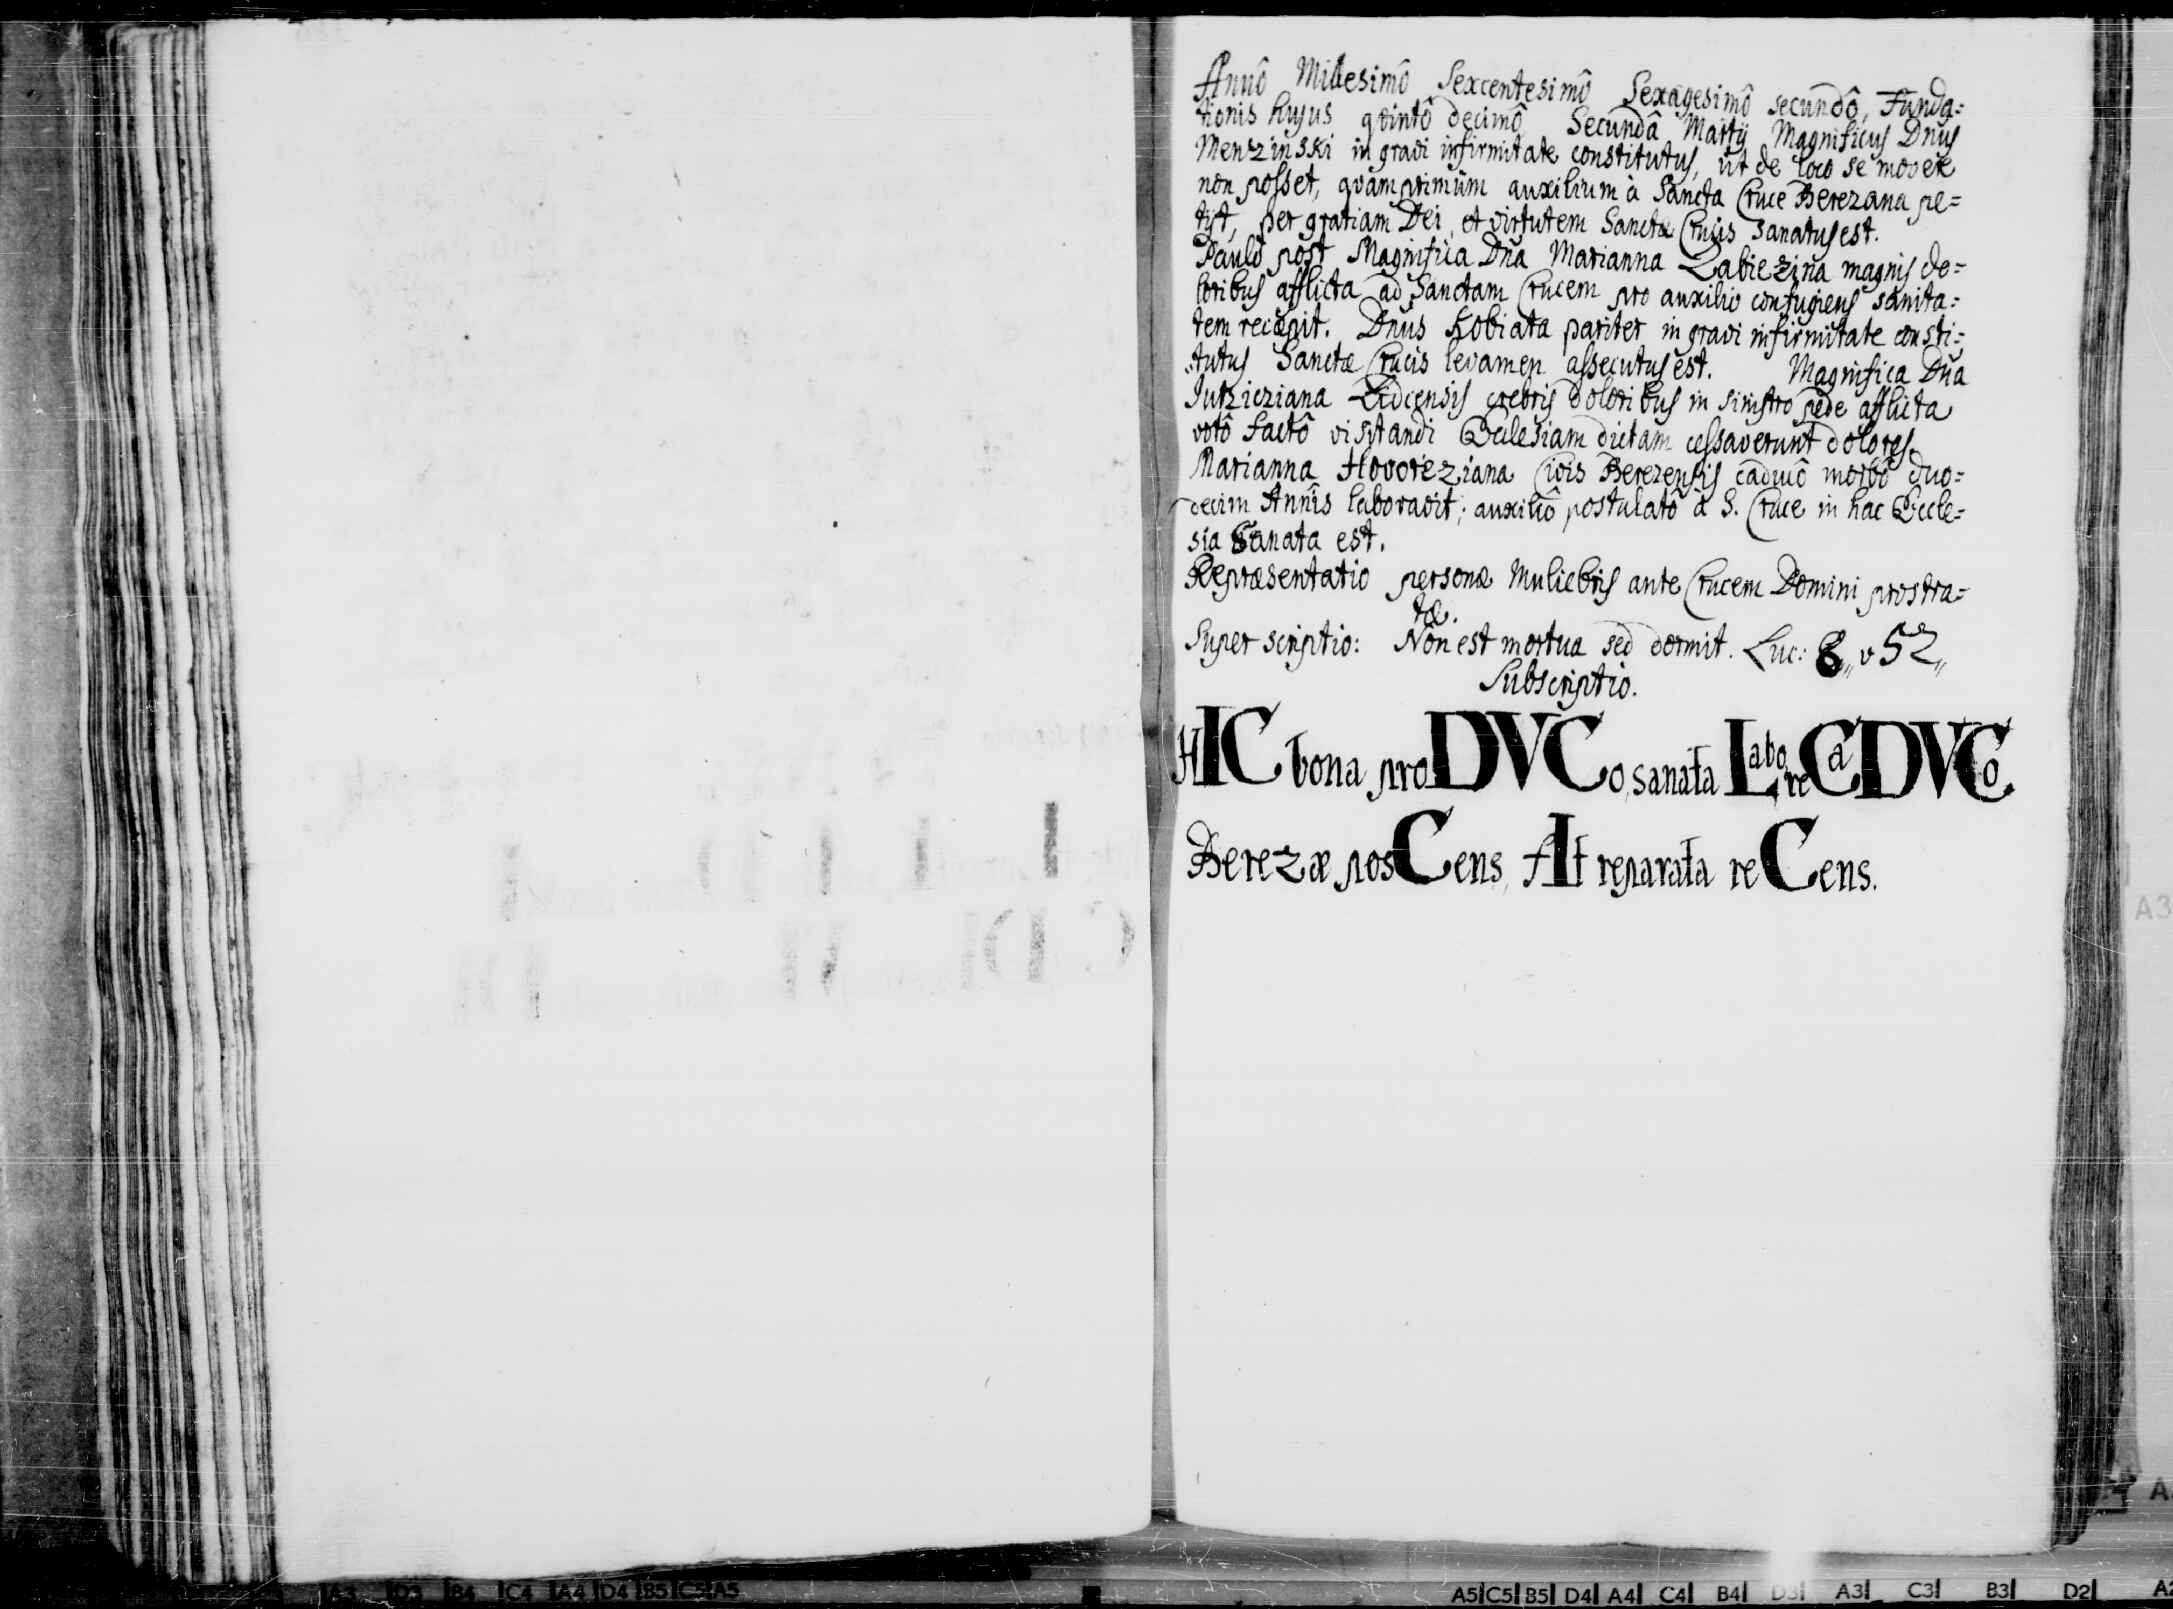 Annô Millesimô Sexcentesimô Sexagesimô secundô, Funda=
tionis hujus qvintô decimô Secundâ Martij Magnificus Dnus
Menzinski in gravi infirmitate constitutus, ut de loco se movere
non posset, qvamprimum auxilium à Sancta Cruce Berezana pe=
tijt, per gratiam Dei, et virtutem Sanctæ Crucis sanatus est.
Paulò post Magnifica Dna Marianna Zabiezina magnis do=
loribus afflicta ad Sanctam Crucem pro auxilio confugiens sanita=
tem recæpit. Dnus Kobiata pariter in gravi infirmitate consti=
tutus Sanctæ Crucis levamen assecutus est. Magnifica Dna
Jutzicziana Lidcensis crebris doloribus in sinistro pede afflicta
votô factô visitandi Ecclesiam dictam cessaverunt dolores.
Marianna Hovoreziana Civis Berezensis caducô morbô duo=
decim Annis laboravit; auxiliô postulatô à S. Cruce in hac Eccle=
sia Sanata est.
Repræsentatio personæ Muliebris ante Crucem Domini prostra=
tæ.
Superscriptio: Non est mortua sed dormit. Luc: 8,, v 52,,
Subscriptio.
HIC bona proDVCo, sanata Labore CaDVCo.
Berezæ posCens, At reparata reCens.
A5 C5 B5 D4 A4 C4 B4 D3 A3 C3 B3 D2
A3 D3 B4 C4 A4 D4 B5 C5 A5